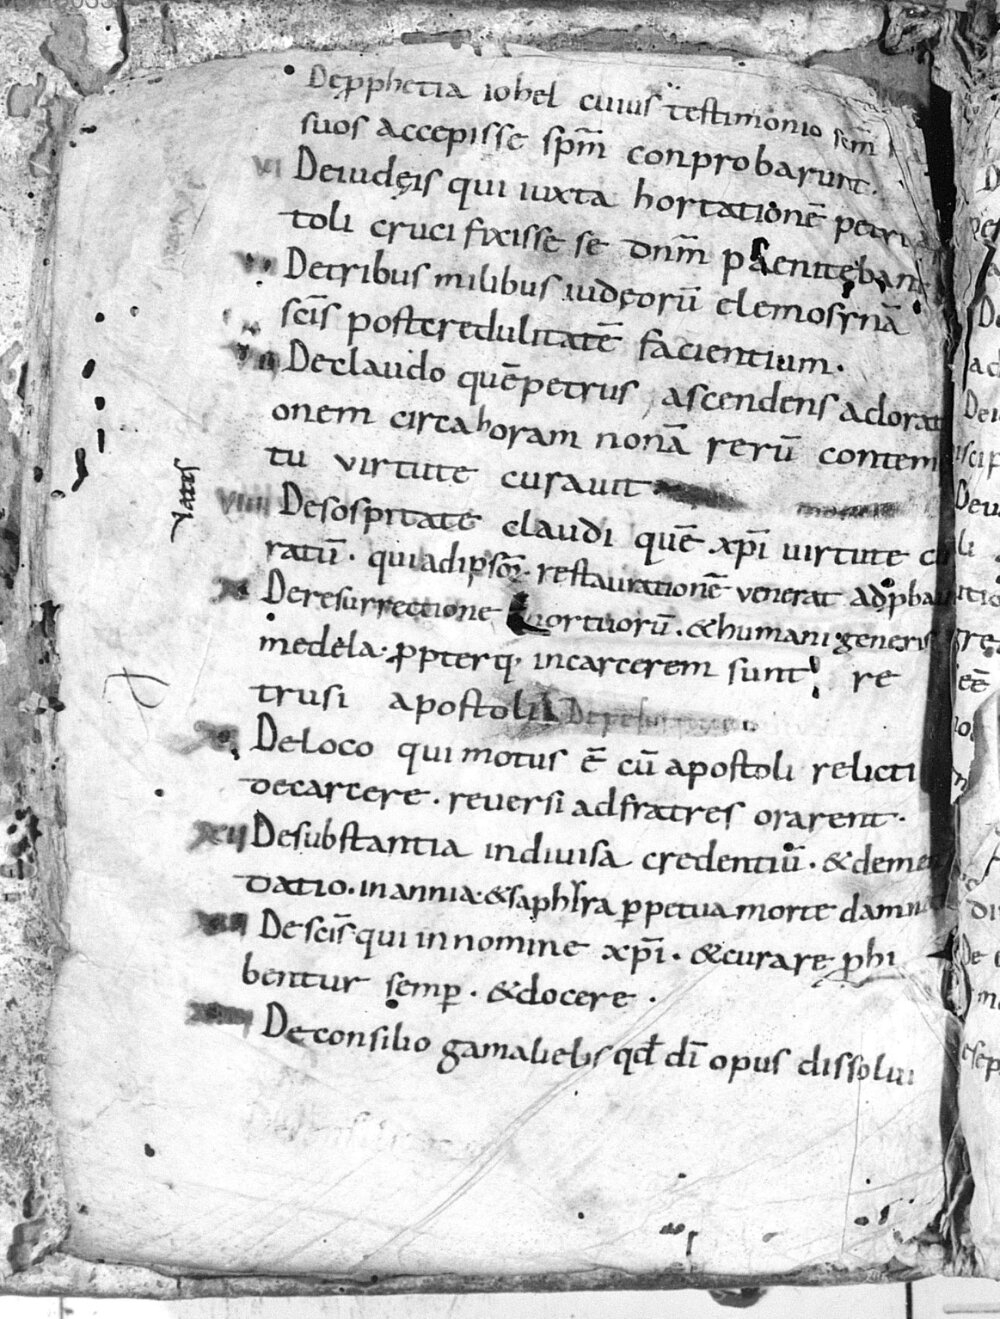 Deꝓphetia iohel cuius testimonio sem̄
suos accepisse spm̄ conprobarunt.
VI Deiudęis qui iuxta hortationē petri
toli crucifixisse se dnm̄ paenitębant
Detribus milibus iudęorū elemosynā
scīs postcredulitatē facientium.
Declaudo quēpetrus ascendens adorati
onem circa horam nonā rerū contem
tu virtute curauit
VIIII Desospitate claudi quē xp̄i uirtute cu
ratū. quiadipsoꝝ. restaurationē venerat adꝓbau
X Deresurrectione mortuorū. &humani generis
medela. ꝓpterq, incarcerem sunt re
trusi apostoli
Deloco qui motus ē cū apostoli relicti
decarcere. reuersi adfratres orarent.
XII Desubstantia indiuisa credentiū. &deme
datio. inannia. &saphira ꝑpetua morte damn
Descīs qui innomine xp̄i. &curare ꝓhi
bentur semꝑ. &docere.
Deconsilio gamalielis qđ dī opus dissolui